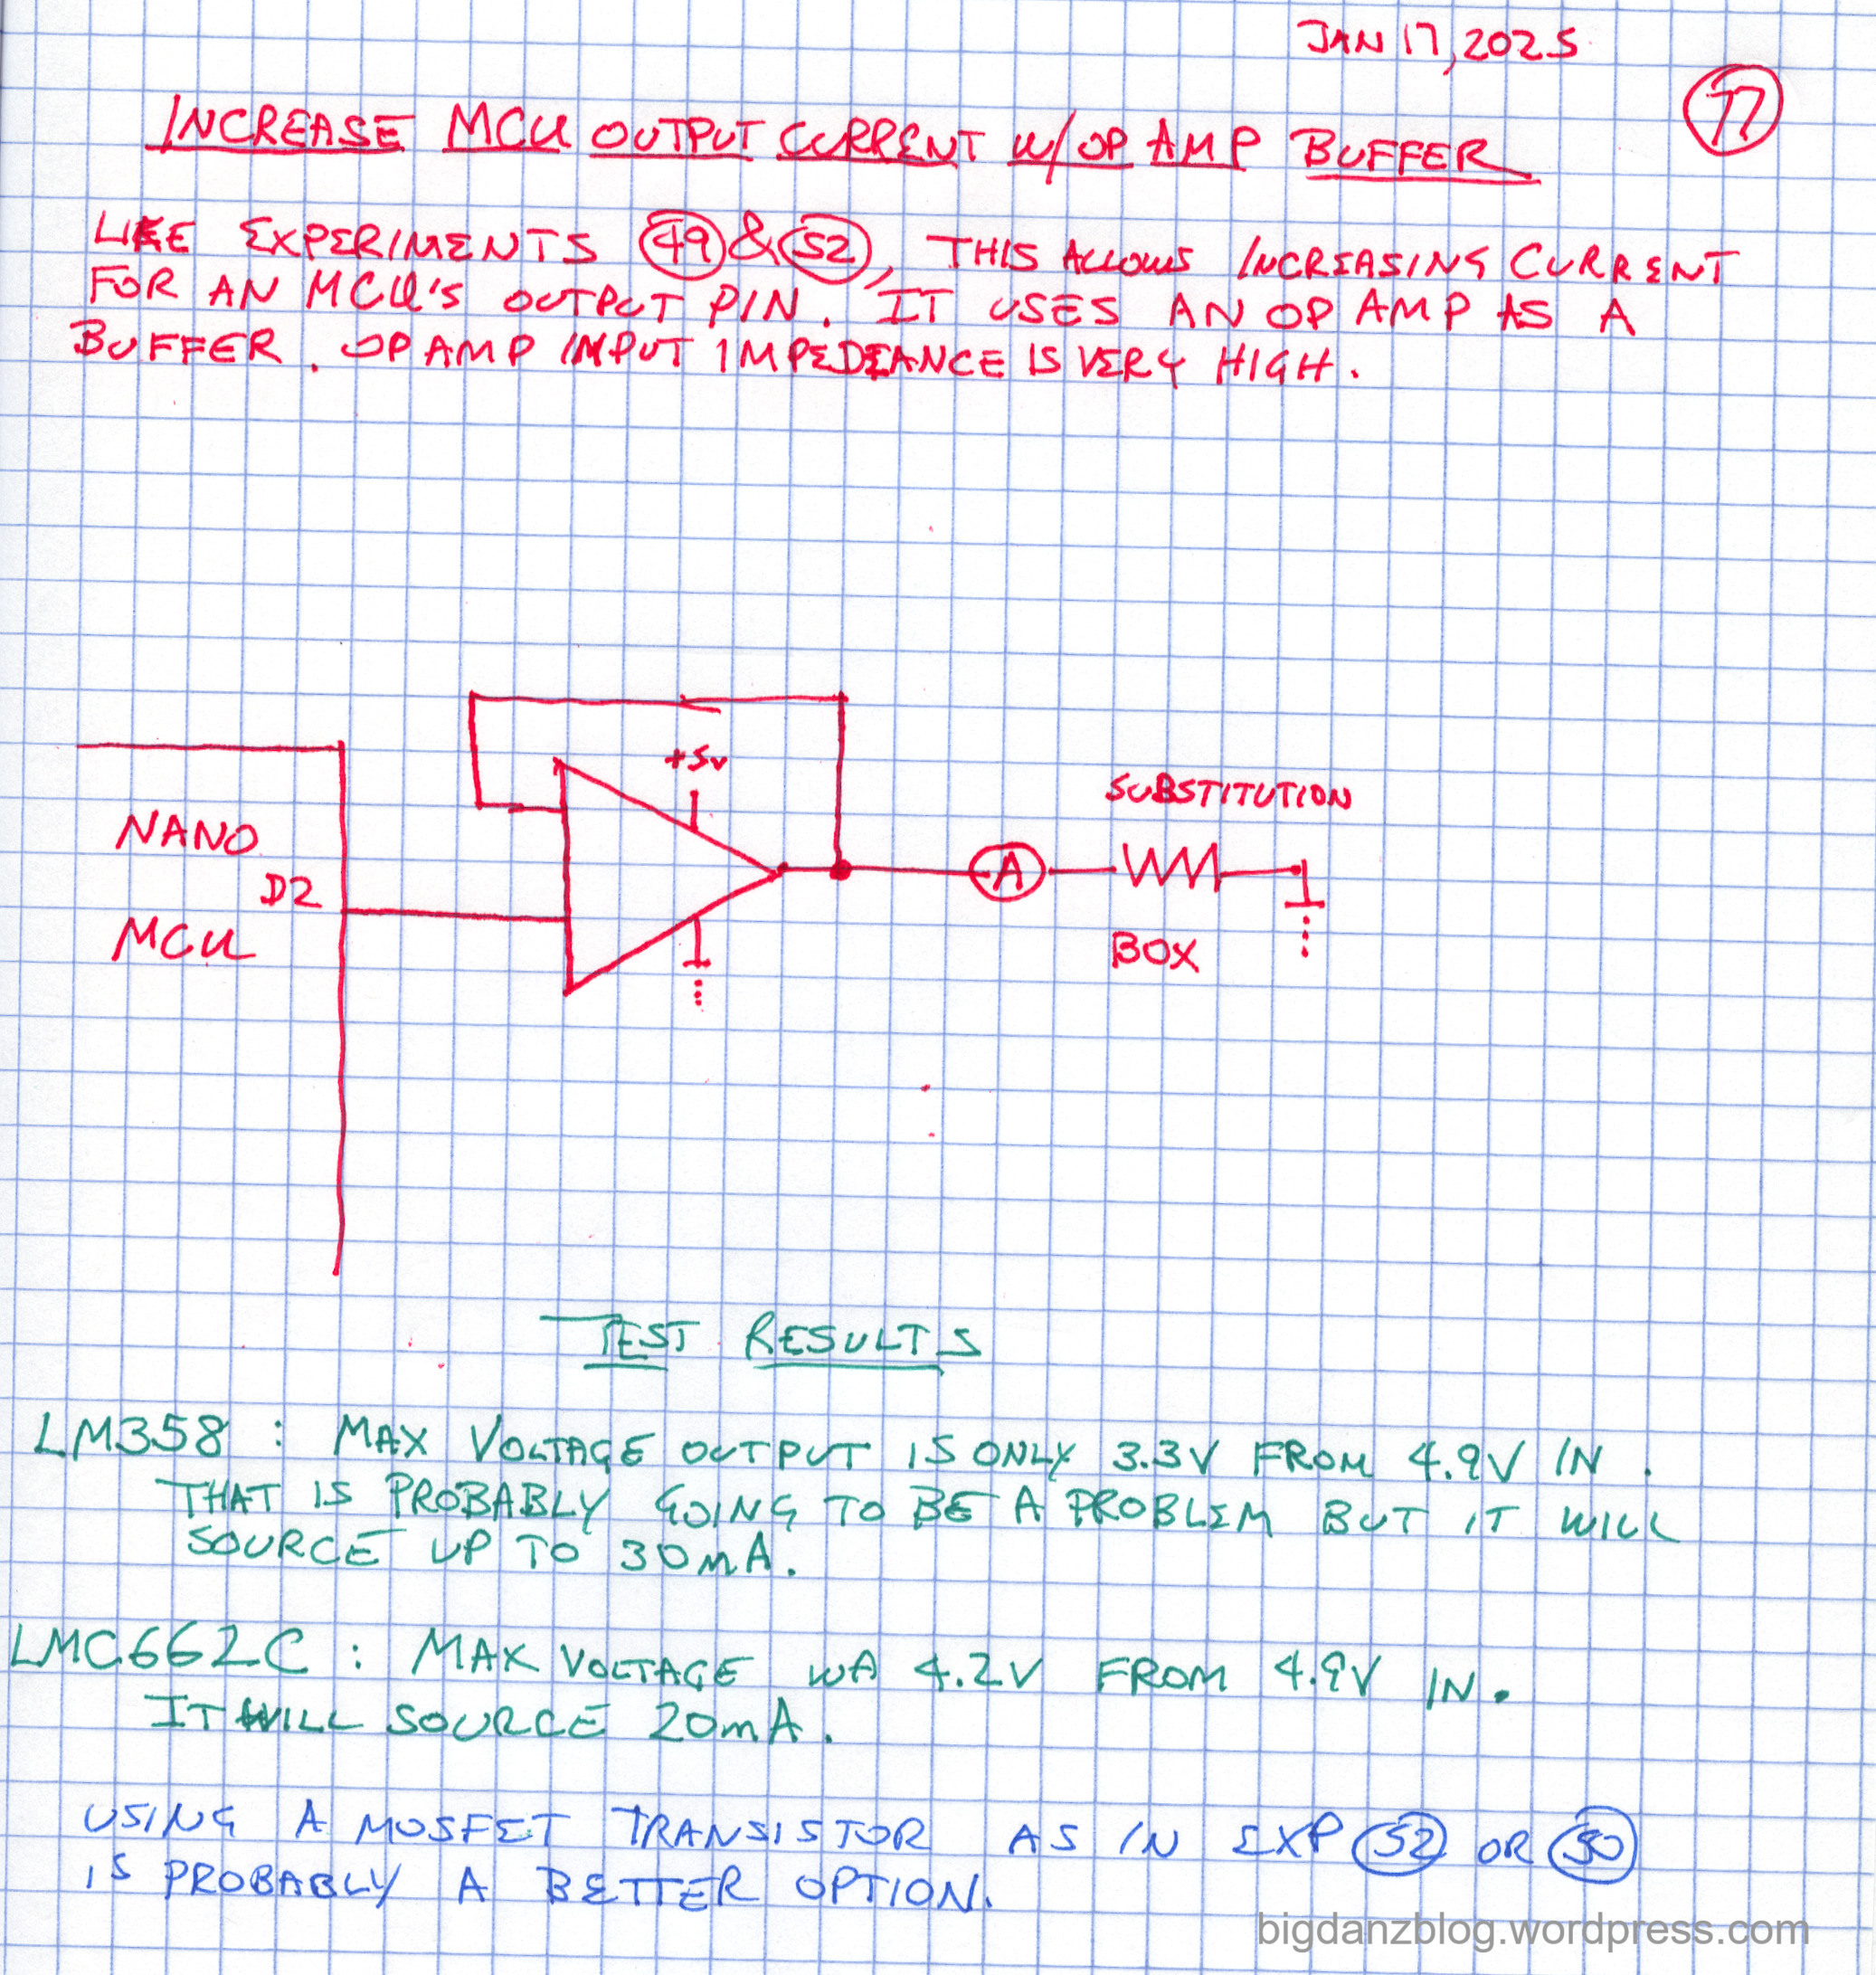 JAN 17, 2025
77
INCREASE MCU OUTPUT CURRENT W/ OP AMP BUFFER
LIKE EXPERIMENTS 49 & 52, THIS ALLOWS INCREASING CURRENT
FOR AN MCU'S OUTPUT PIN. IT USES AN OP AMP AS A
BUFFER. OP AMP INPUT IMPEDEANCE IS VERY HIGH.
+5V
SUBSTITUTION
NANO
A
D2
MCU
BOX
TEST RESULTS
LM358 : MAX VOLTAGE OUTPUT IS ONLY 3.3V FROM 4.9V IN.
THAT IS PROBABLY GOING TO BE A PROBLEM BUT IT WILL
SOURCE UP TO 30mA.
LMC662C : MAX VOLTAGE WA 4.2V FROM 4.9V IN.
IT WILL SOURCE 20mA.
USING A MOSFET TRANSISTOR AS IN EXP 52 OR 50
IS PROBABLY A BETTER OPTION.
bigdanzblog.wordpress.com